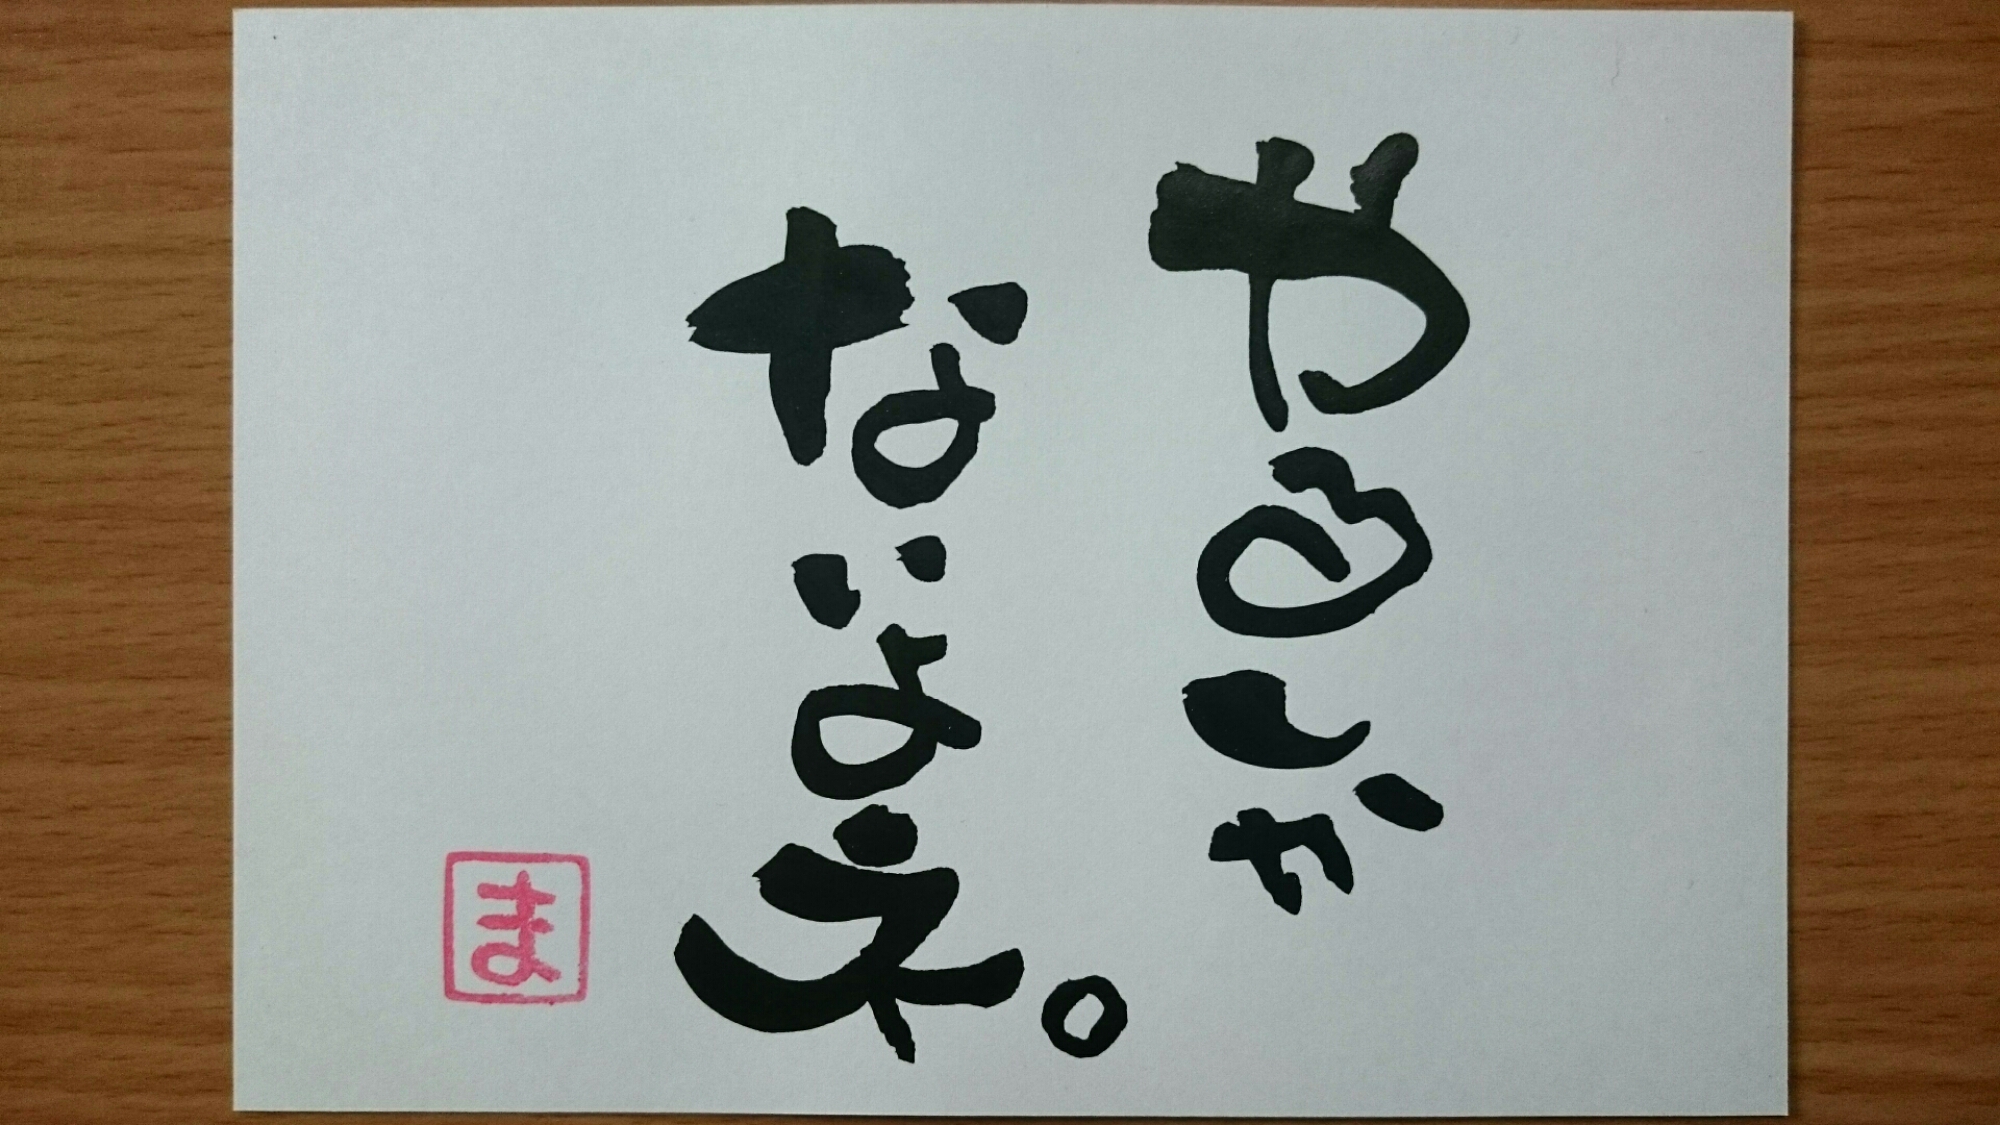 やるしか
ないよネ。
ま